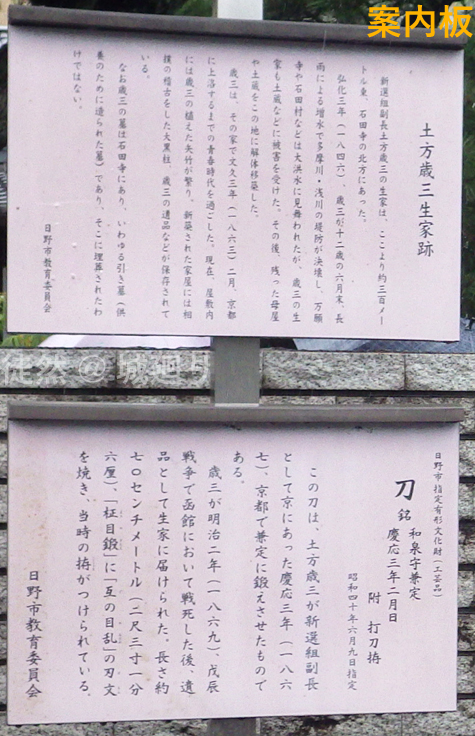 案内板
土方歳三生家跡
新選組副長土方歳三の生家は、ここより約三百メー
トル東、石田寺の北方にあった。
弘化三年（一八四六）、歳三が十二歳の六月末、長
雨による増水で多摩川・浅川の堤防が決壊し、万願
寺や石田村などは大洪水に見舞われたが、歳三の生
家も土蔵などに被害を受けた。その後、残った母屋
や土蔵をこの地に解体移築した。
歳三は、その家で文久三年（一八六三）二月、京都
に上洛するまでの青春時代を過ごした。現在、屋敷内
には歳三の植えた矢竹が繁り、新築された家屋には相
撲の稽古をした大黒柱、歳三の遺品などが保存されて
いる。
なお歳三の墓は石田寺にあり、いわゆる引き墓（供
養のために造られた墓）であり、そこに埋葬されたわ
けではない。
日野市教育委員会
徒然@城廻り
日野市指定有形文化財（工芸品）
刀 銘 和泉守兼定
慶応三年二月日
附 打刀拵
昭和四十年六月九日指定
この刀は、土方歳三が新選組副長
として京にあった慶応三年（一八六
七）、京都で兼定に鍛えさせたもので
ある。
歳三が明治二年（一八六九）、戊辰
戦争で函館において戦死した後、遺
品として生家に届けられた。長さ約
七〇センチメートル（二尺三寸一分
六厘）、「柾目鍛」に「互の目乱」の刃文
を焼き、当時の拵がつけられている。
日野市教育委員会